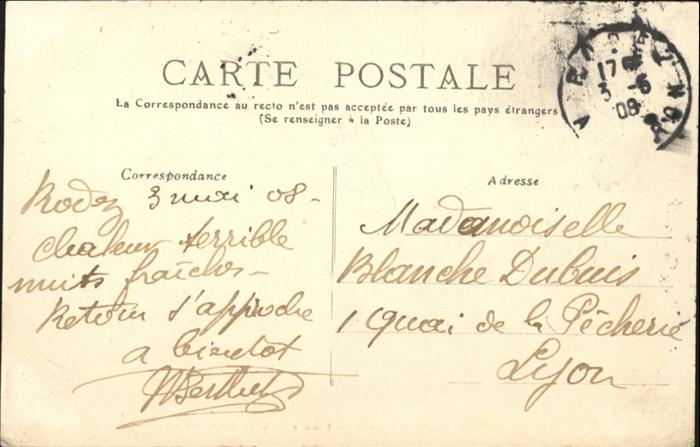 CARTE POSTALE
La Correspondance au recto n'est pas acceptée par tous les pays étrangers
(Se renseigner à la Poste)
Correspondance
Rodez 3 mai 08 -
chaleur terrible
nuits fraîches -
Retour s'approche
a bientot
Adresse
Mademoiselle
Blanche Dubuis
1 Quai de la Pêcherie
Lyon
17
3 - 5
08